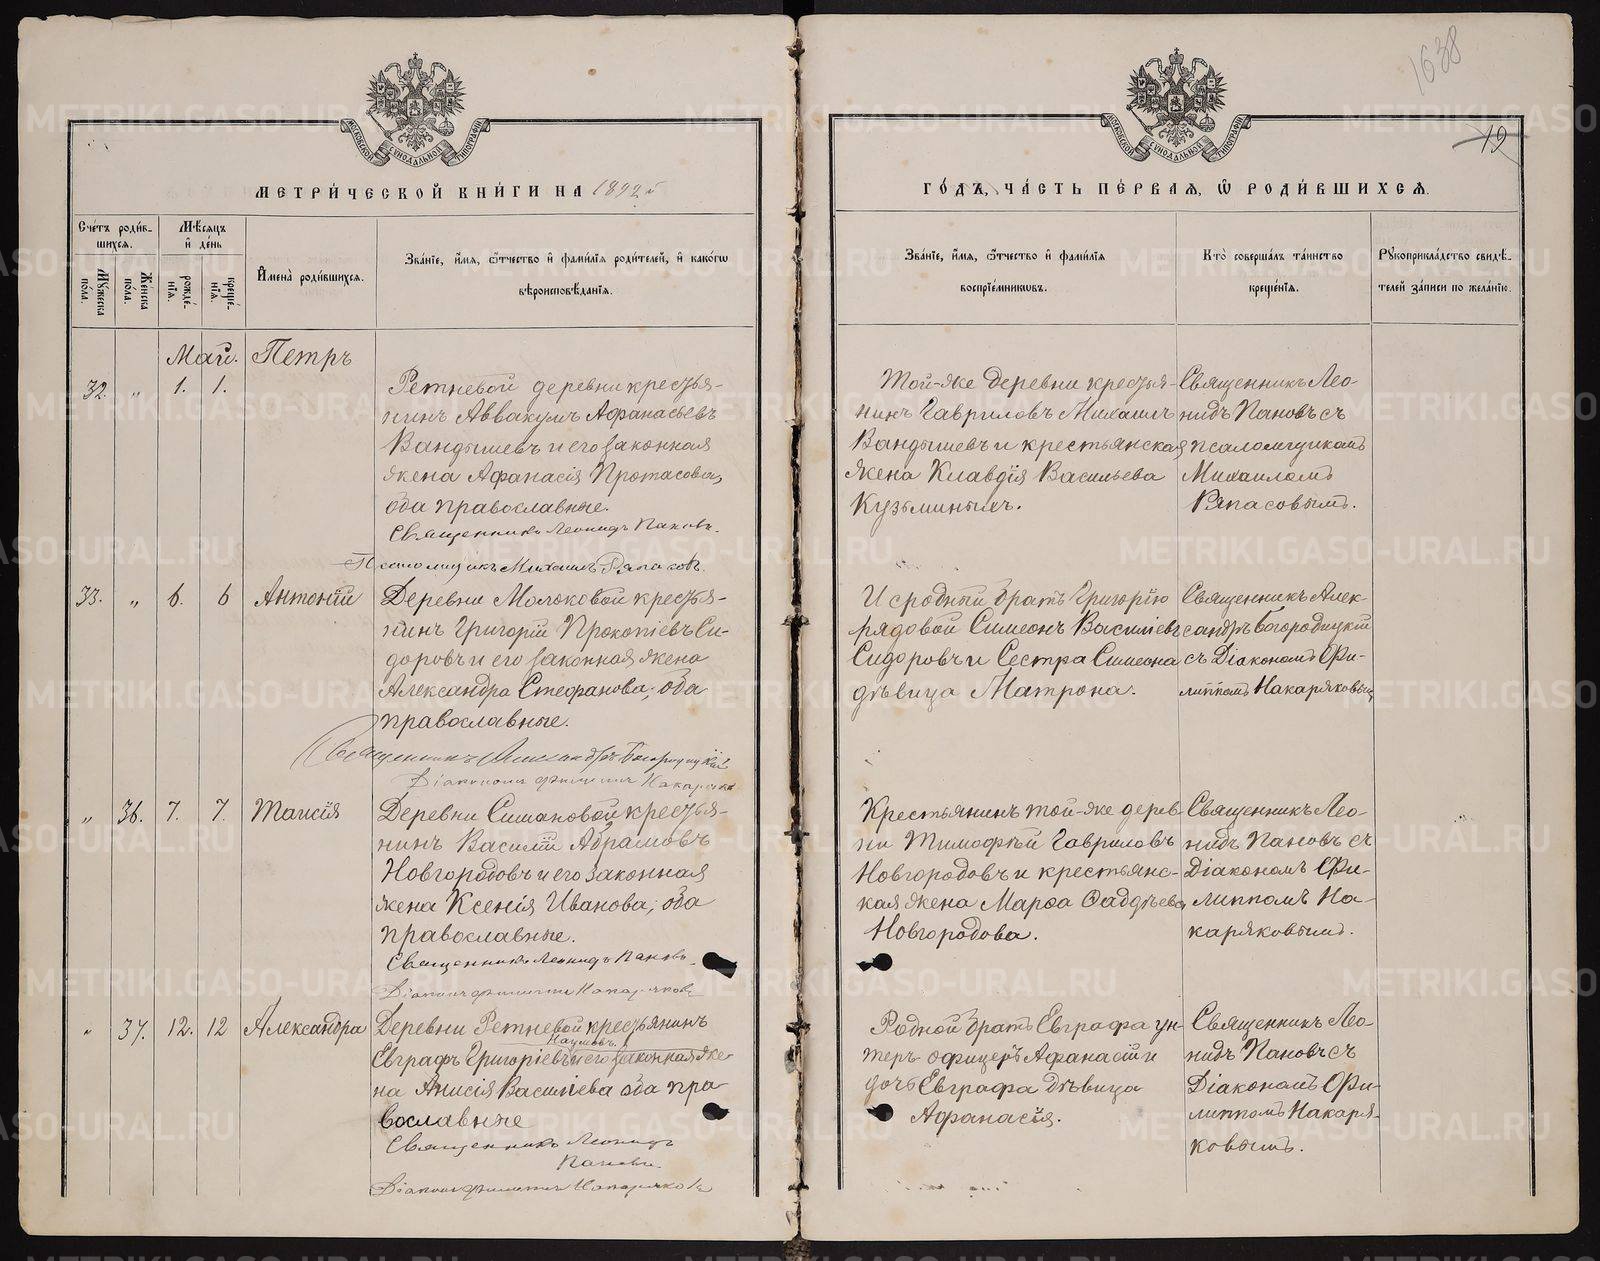 1638
19
МОСКОВСКОЙ СѴНОДАЛЬНОЙ ТИПОГРАФІИ
МОСКОВСКОЙ СѴНОДАЛЬНОЙ ТИПОГРАФІИ
МЕТРИ́ЧЕСКОЙ КНИ́ГИ НА 1892й
ГО́ДЪ, ЧА́СТЬ ПЕ́РВАЯ, Ѿ РОДИ́ВШИХСѦ.
Сче́тъ роди́в-
шихсѧ.
Мѣ́сѧцъ
и҆ де́нь
Мꙋ́жеска по́ла.
Же́нска по́ла.
рожде́-
нїѧ.
креще́-
нїѧ.
И҆мена̀ роди́вшихсѧ.
Зва́нїе, и҆́мѧ, ѻ҆́тчество и҆ фами́лїѧ роди́телей, и҆ како́гѡ
вѣроисповѣ́данїѧ.
Зва́нїе, и҆́мѧ, ѻ҆́тчество и҆ фами́лїѧ
воспрїе́мникѡвъ.
Кто̀ соверша́лъ та́инство
креще́нїѧ.
Рꙋкоприкла́дство свидѣ́-
телей за́писи по жела́нїю.
Май. Петръ
32. „ 1. 1.
Ретневой деревни кресть̀я-
нинъ Аввакумъ Афанасьевъ
Вандышевъ и его законная
жена Афанасія Протасова,
оба православные.
Священникъ Леонидъ Пановъ.
Псаломщикъ Михаилъ Ряпасовъ.
Той-же деревни крестья-
нинъ Гавриловъ Михаилъ
Вандышевъ и крестьянская
жена Клавдія Васильева
Кузьминыхъ.
Священникъ Лео-
нидъ Пановъ съ
псаломщикомъ
Михаиломъ
Ряпасовымъ.
33. „ 6. 6 Антоній
Деревни Молоковой крестья-
нинъ Григорій Прокопіевъ Си-
доровъ и его законная жена
Александра Стефанова; оба
православные.
Священникъ Александръ Богородицкій
Діаконъ Филиппъ Накаряковъ
И сродный братъ Григорію
рядовой Симеонъ Василіевъ
Сидоровъ и Сестра Симеона
дѣвица Матрона.
Священникъ Алек-
сандръ Богородицкій
съ Діакономъ Фи-
липпомъ Накаряковымъ
„ 36. 7. 7. Таисія
Деревни Симановой крестья-
нинъ Василій Абрамовъ
Новгородовъ и его законная
жена Ксенія Иванова; оба
православные.
Священникъ Леонидъ Пановъ.
Діаконъ Филиппъ Накаряковъ
Крестьянинъ той-же дерев-
ни Тимофей Гавриловъ
Новгородовъ и крестьянс-
кая жена Марѳа Ѳаддѣева
Новгородова.
Священникъ Лео-
нидъ Пановъ съ
Діакономъ Фи-
липпомъ На-
каряковымъ.
„ 37. 12. 12 Александра
Деревни Ретневой крестьянинъ
Наумовъ.
Евграфъ Григоріевъ и его законная же-
на Анисія Василіева оба пра-
вославные
Священникъ Леонидъ
Пановъ.
Діаконъ Филиппъ Накаряковъ
Родной братъ Евграфа ун-
теръ-офицеръ Афанасій и
дочь Евграфа дѣвица
Афанасія.
Священникъ Лео-
нидъ Пановъ съ
Діакономъ Фи-
липпомъ Накаря-
ковымъ.
METRIKI.GASO-URAL.RU